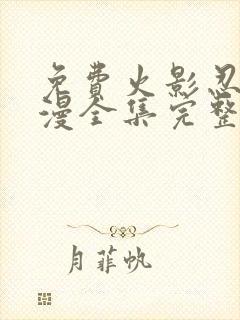 免費火影忍
漫全集完整
月菲帆